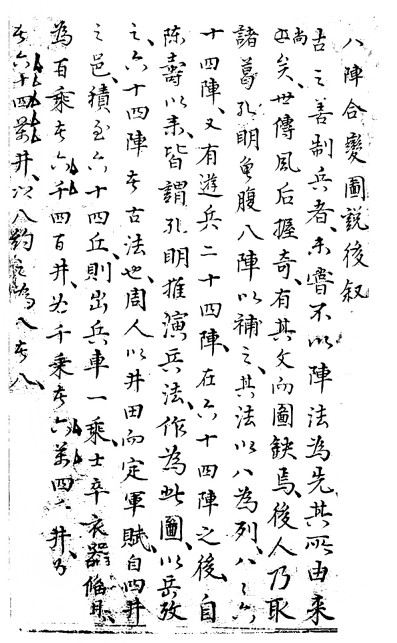 八陣合變圖說後叙
古之善制兵者未嘗不以陣法為先其所由來
尚矣世傳風后握奇有其文而圖缺焉後人乃取
諸葛孔明魚腹八陣以補之其法以八為列八々六
十四陣又有遊兵二十四陣在六十四陣之後自
陳壽以来皆謂孔明推演兵法作為此圖以兵攷
之六十四陣本古法也周人以井田而定軍賦自四井
之邑積至六十四丘則出兵車一乘士卒衣器偹具
為百乘本六千四百井為千乘本六萬四井乃
本六十四萬井以八約之為八本八